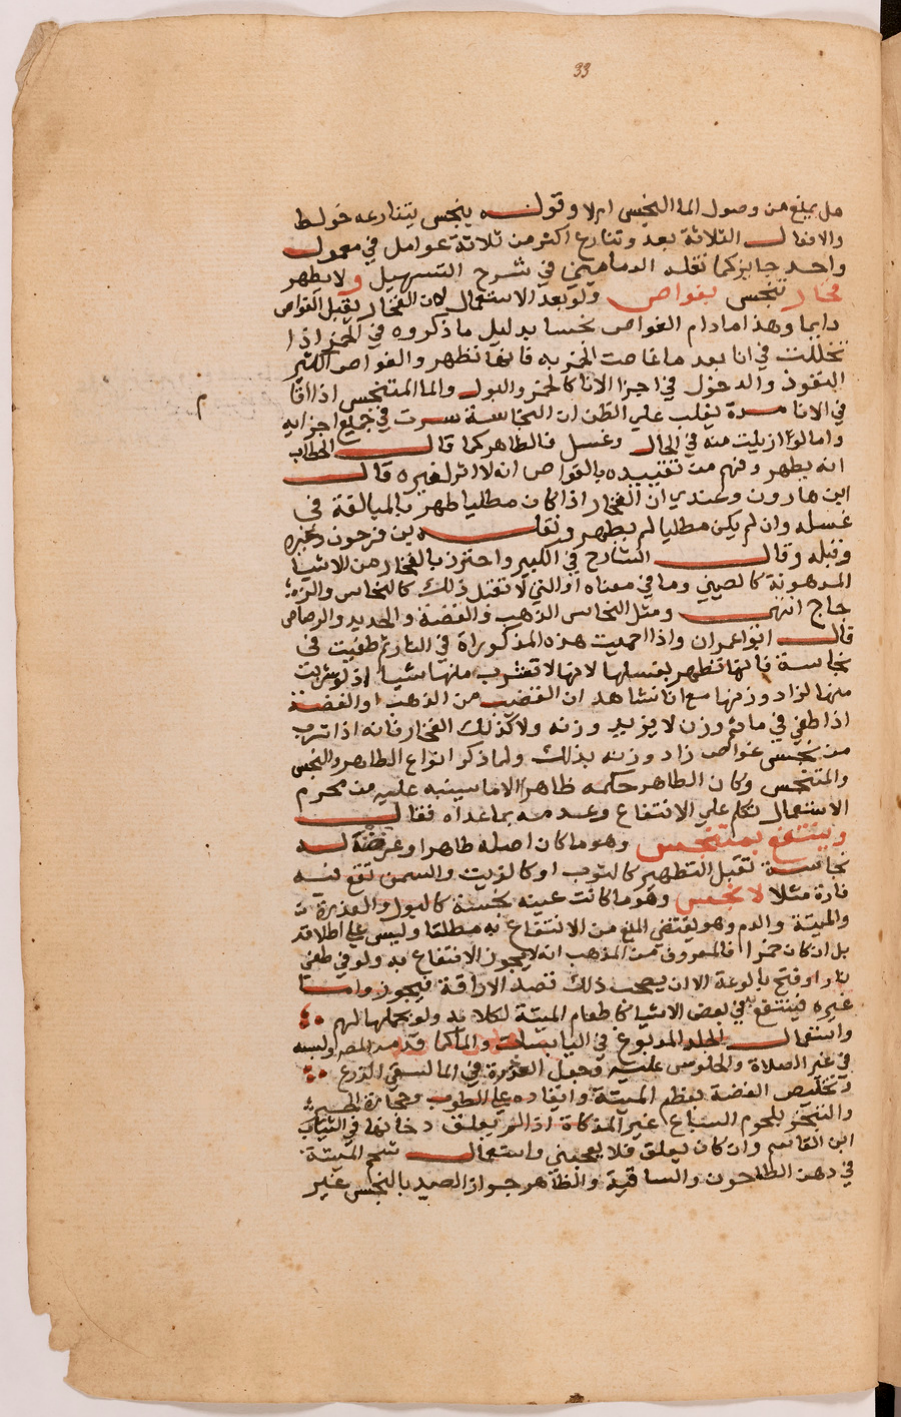 33
هل يمنع من وصول الما النجس ام لا وقوله ينجس يتنازعه خولط
والافعال الثلاثة بعده وتنازع اكثر من ثلاثة عوامل في معمول
واحد جايز كما نقله الدماميني في شرح التسهيل ولا يطهر
فخار بنجس بغواص ولو بعد الاستعمال لان الفخار يقبل الغواص
دايما وهذا ما دام الغواص نجسا بدليل ما ذكروه في الخمر اذا
تخللت في انا بعد ما غاصت الخمر به فانها تطهر والغواص الكثير
النفوذ والدخول في اجزا الانا كالخمر والبول والما المتنجس اذا اقا
م
في الانا مدة يغلب علي الظن ان النجاسة سرت في جميع اجزايه
واما لو ازيلت منه في الحال وغسل فالظاهر كما قال الحطاب
انه يطهر وفهم من تقييده بالغواص انه لا اثر لغيره قال
ابن هارون وعندي ان الفخار اذا كان مطليا طهر بالمبالغة في
غسله وان لم يكن مطليا لم يطهر ونقله بن فرحون وغيره
وقبله وقال الشارح في الكبير واحترز بالفخار من الاشيا
المدهونة كالصيني وما في معناه او التي لا تقبل ذلك كالنحاس والز
جاج انتهى ومثل النحاس الذهب والفضة والحديد والرصاص
قال ابو عمران واذا احميت هذه المذكوراة في النار ثم طفيت في
نجاسة فانها تطهر بغسلها لانها لا تشرب منها شيا اذ لو شربت
منها لزاد وزنها مع انا نشاهد ان القضيب من الذهب او الفضة
اذا طفي في ما ثم وزن لا يزيد وزنه ولا كذلك الفخار فانه اذا شرب
من نجس غواص زاد وزنه بذلك ولما ذكر انواع الطاهر والنجس
والمتنجس وكان الطاهر حكمه ظاهرا الا ما سينبه عليه من محرم
الاستعمال تكلم علي الانتفاع وعدمه بما عداه فقال
وينتفع بمتنجس وهو ما كان اصله طاهرا وعرضة له
نجاسة تقبل التطهير كالثوب او كالزيت والسمن تقع فيه
فارة مثلا لا نجس وهو ما كانت عينه نجسة كالبول والعذرة
والميتة والدم وهو يقتضي المنع من الانتفاع به مطلقا وليس علي اطلاقه
بل ان كان خمرا فالمعروف من المذهب انه لا يجوز الانتفاع به ولو في طفي
نار او فتح بالوعة الا ان يصحب ذلك قصد الاراقة فيجوز واما
غيره فينتفع به في بعض الاشيا كاطعام الميتة لكلابه ولو بحملها لهم
واستعمال الجلد المدبوغ في اليابسات والما كما قدمه المص ولبسه
في غير الصلاة والجلوس عليه وجعل العذرة في الما لسقي الزرع
وتخليص الفضة بعظم الميتة وايقاده علي الطوب وحجارة الجير
والتبخر بلحوم السباع غير المذكاة اذا لم يعلق دخانها في الثياب
ابن القاسم وان كان يعلق فلا يعجبني واستعمال شحم الميتة
في دهن الطاحون والساقية والظاهر جواز الصيد بالنجس غير